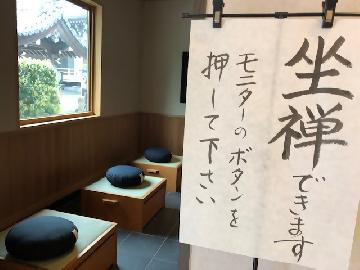 坐禅できます
モニターのボタンを
押して下さい